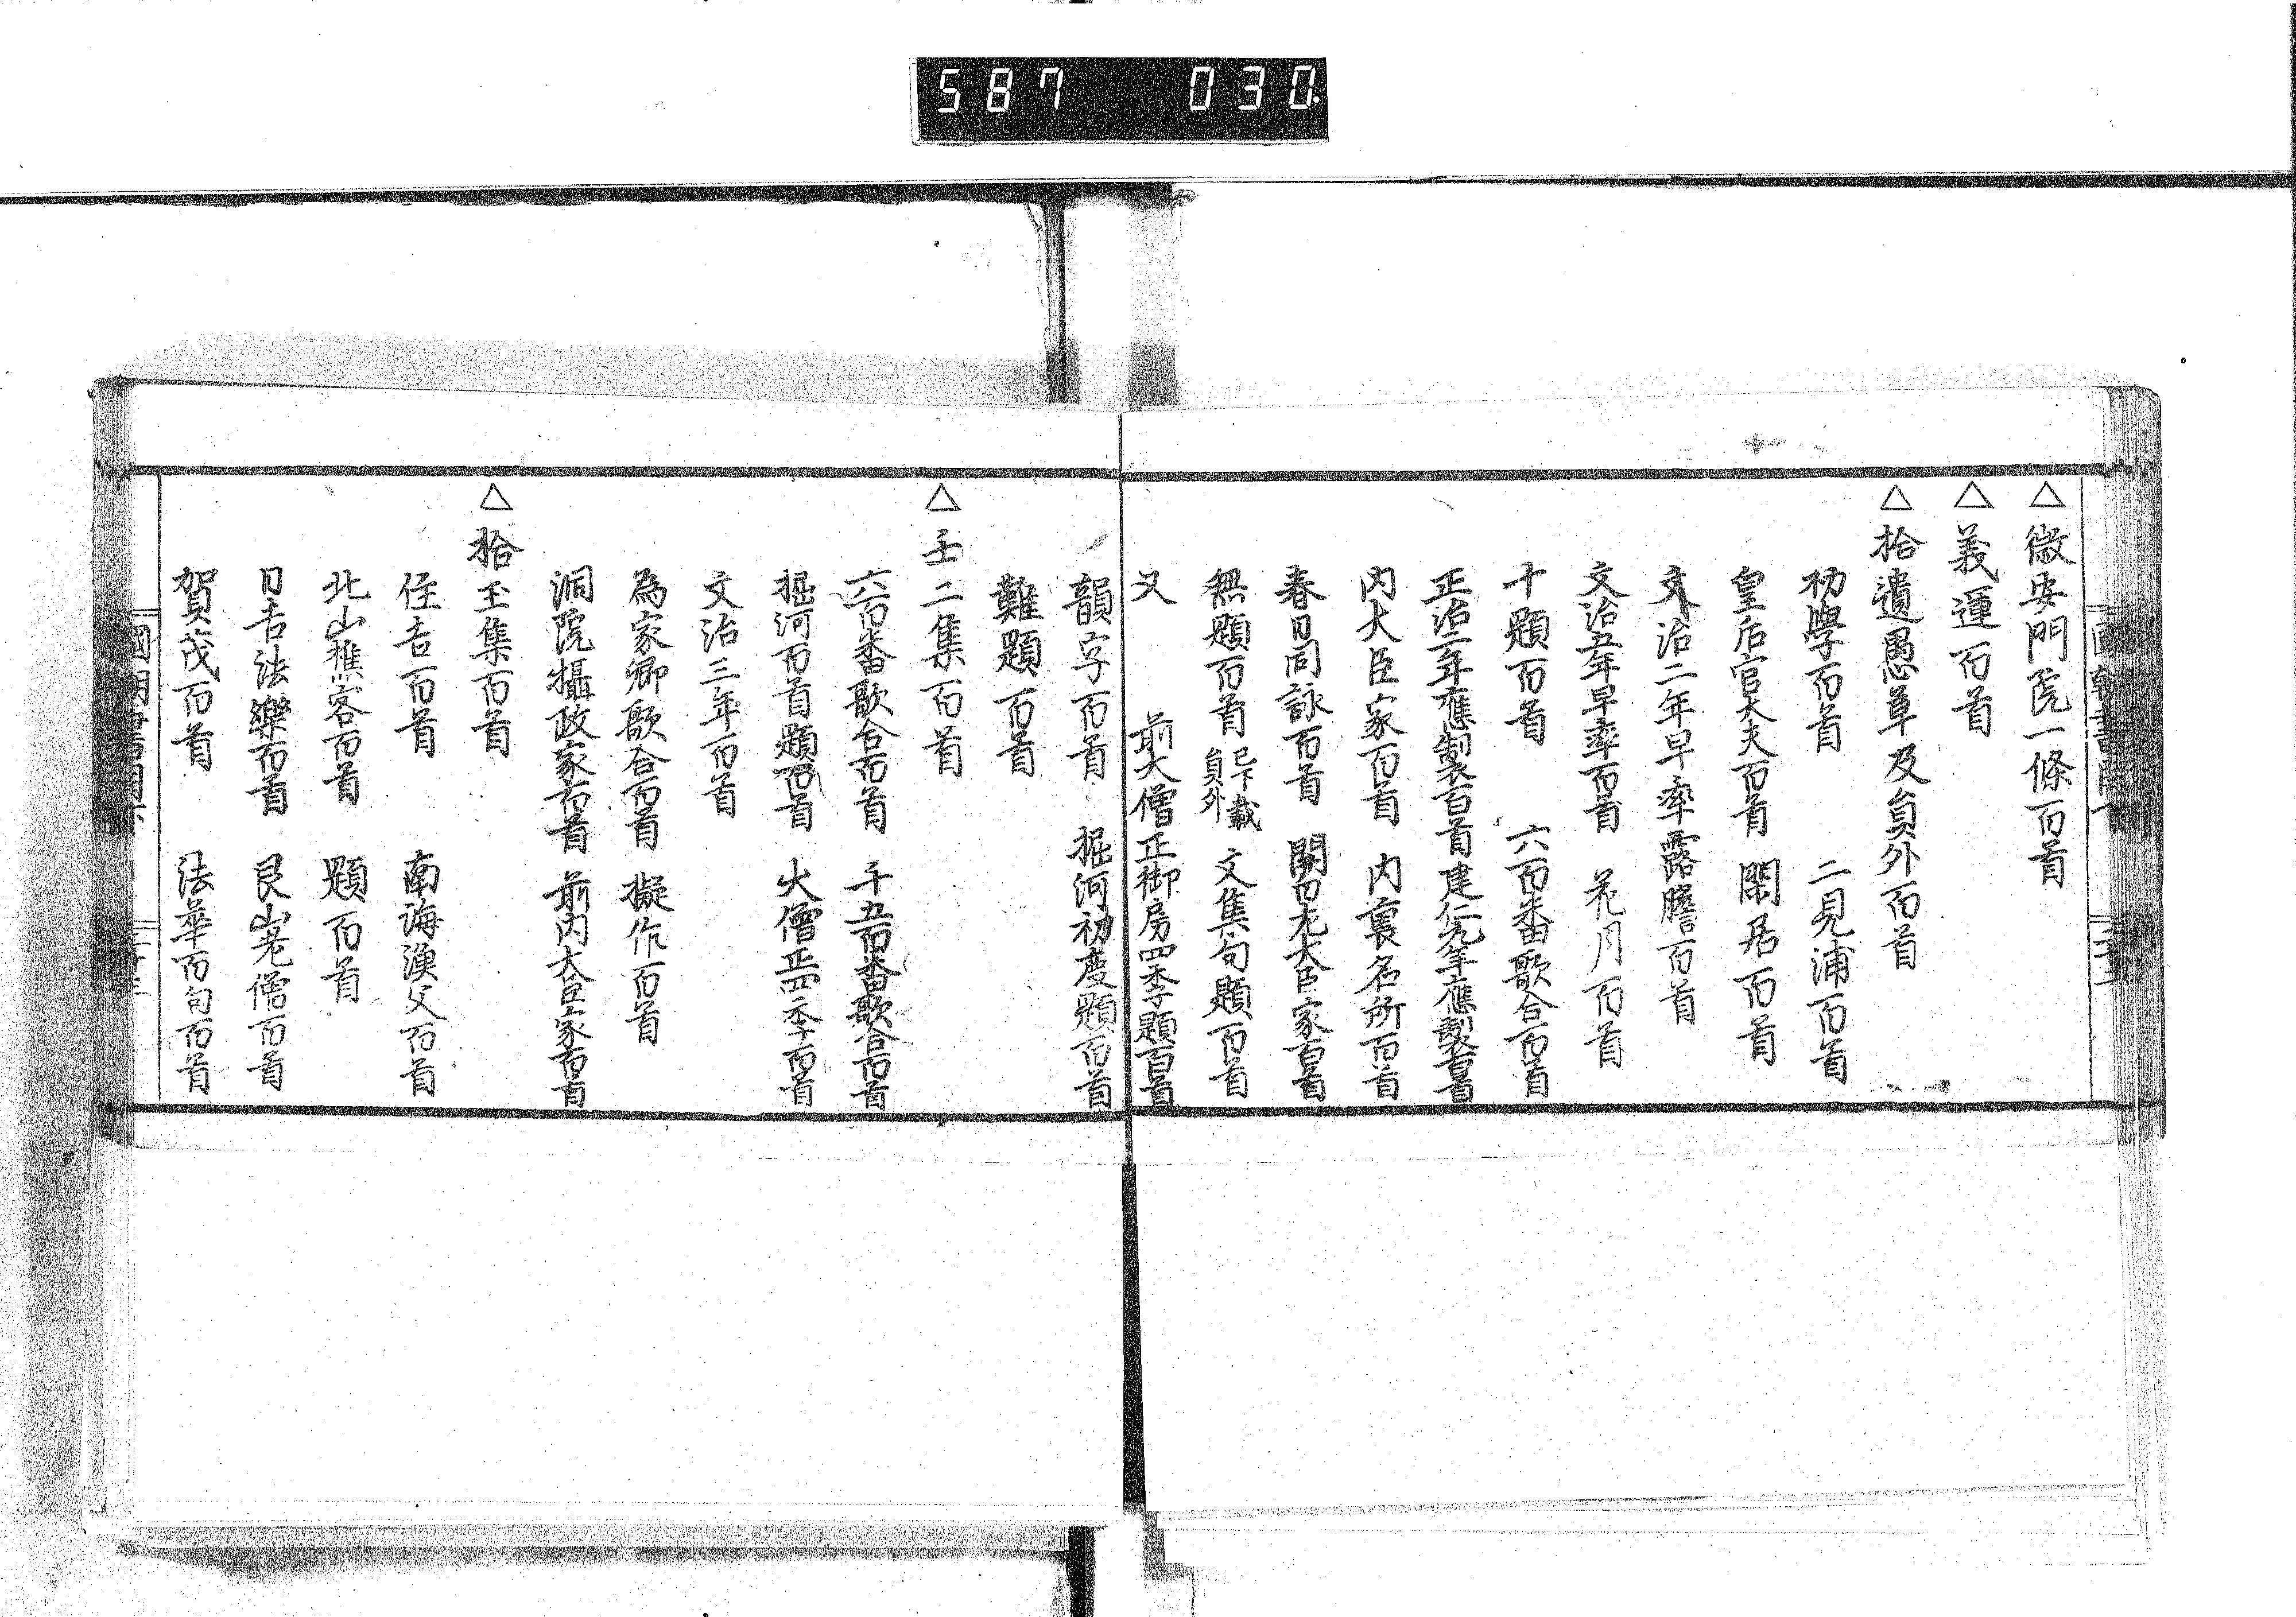 587 030.
△ 徽安門院一條百首
△ 義運百首
△ 拾遺愚草及員外百首
初學百首 二見浦百首
皇后宮大夫百首 閑居百首
文治二年早率露膽百首
文治五年早率百首 花月百首
十題百首 六百番歌合百首
正治二年應製百首 建仁元年應製百首
内大臣家百首 内裏名所百首
春日同詠百首 関白左大臣家百首
無題百首 已下載員外 文集句題百首
又 前大僧正御房四季題百首
韻字百首 堀河初度題百首
難題百首
△ 壬二集百首
六百番歌合百首 千五百番歌合百首
堀河百首題百首 大僧正四季百首
文治三年百首
為家卿歌合百首 擬作百首
洞院攝政家百首 前内大臣家百首
△ 拾玉集百首
住吉百首 南海漁父百首
北山樵客百首 題百首
日吉法樂百首 艮山老僧百首
賀茂百首 法華百句百首